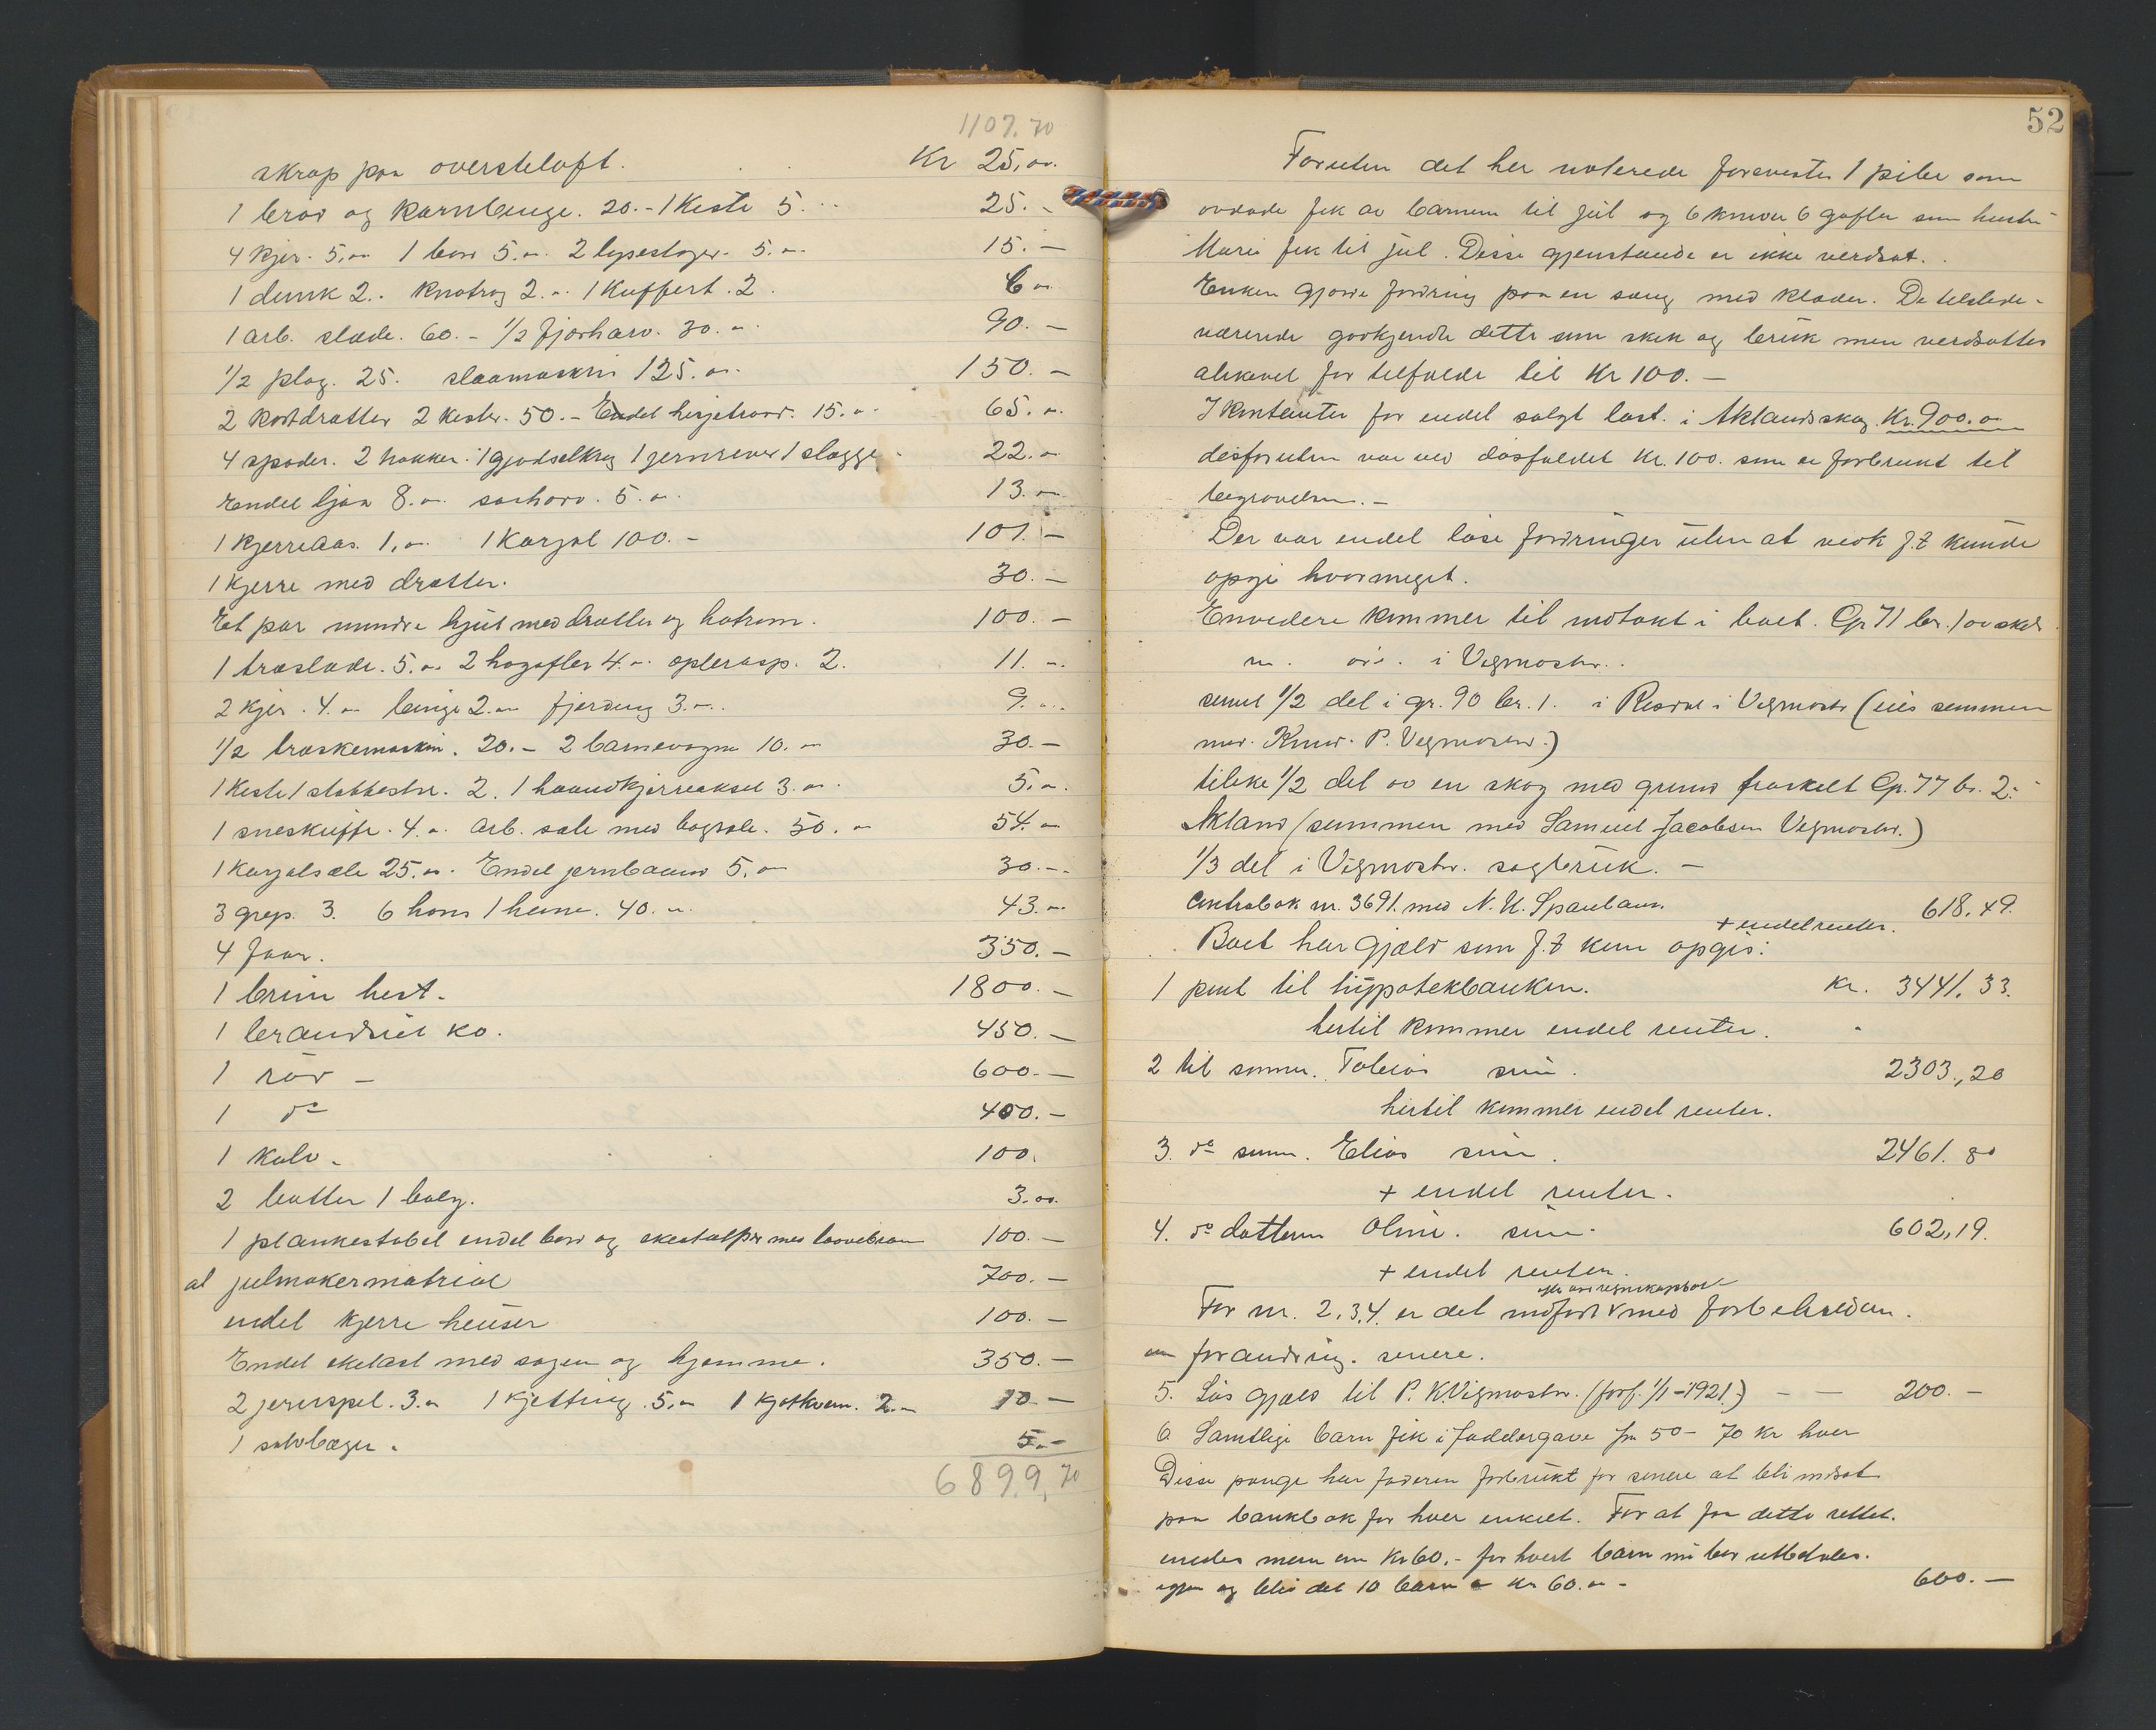 1107.70
skrap paa øversteloft. Kr 25,00.
1 brød og kornbinge. 20.- 1 Kiste 5. 25.-
4 kjer. 5,00 1 bor 5.00. 2 lysestager. 5.00 15.-
1 dunk 2.. knatrog 2.00. 1 Kuffert. 2. 6 00
1 arb. slæde. 60.- 1/2 fjørharv. 30.00. 90.-
1/2 plog. 25. slaamaskin 125.00. 150.-
2 2 kister. 50.- Endel hesjetraad. 15.00. 65.00.
4 spader. 2 hakker. 1 gjødselkrog 1 jernrever 1 slægge 22.00
Endel ljaa 8.00. 5.00. 13.00
1 kjerreaas. 1,00. 1 Karjol 100.- 101.-
1 kjerre med drætter. 30.-
Et par mindre hjul med drætter og 100.-
1 træslæde. 5.00. 2 høgafler 4.00. 2. 11.00.
2 kjer. 4.00 binge 2.00 fjerding 3.00. 9.00.
1/2 træskemaskin. 20.- 2 barnevogne 10.00 30.-
1 Kiste 1 stabbestee. 2. 1 haandkjerreaksel 3.00. 5.00.
1 sneskuffe. 4.00. Arb. sæle med bogsæle. 50.00 54.00
1 Karjolsæle 25.00. Endel jernbaand 5.00 30.-
3 grep. 3. 6 høns 1 hane. 40.00. 43.00
4 Faar. 350.-
1 brun hest. 1800.-
1 brandsiet ko. 450.-
1 rød - 600.-
1 do 400.-
1 kalv. 100.
2 bøtter 1 balg. 3.00.
1 plankestabel endel bord og 100.-
al hjulmakermatrial 700.-
endel kjerre 100.-
Endel eketast med sagen og hjemme. 350.-
2 jernspel. 3.00 1 Kjetting 5.00 1 kjøtkvern. 2.00 10.-
1 sølvbæger. 5.-
6899,70
52
Foruten det her noterede forevistes 1 pibe som
avdøde fik av barnene til jul og 6 kniver 6 gafler som hustru
Marie fik til jul. Disse gjenstande er ikke verdsat.
Enken gjorde fordring paa en seng med klæder. De tilstede-
værende godkjendte dette som skik og bruk men verdsattes
alikevel for tilfælde til Kr 100.-
I kontanter for endel solgt last. i Aklandsskog. Kr. 900.00
desforuten var ved dødsfaldet Kr. 100. som er forbrukt til
begravelsen.-
Der var endel løse fordringer uten at nogen f.t kunde
opgi hvormeget.
Envidere kommer til indtækt i boet. Gr 71 br. 1 av skyld
m. øre. i Vegmostad.
samt 1/2 del i gr. 90 br. 1. i Risdal i Vegmostad (eies sammen
med. Knud. P. Vegmostad.)
tilike 1/2 del av en skog med grund fraskilt Gr. 77 br. 2.
Akland (sammen med Samuel Jacobsen Vegmostad.)
1/3 del i Vigmostad. sagbruk.-
Contrabok nr. 3691. med N. U. Sparebank. 618,49.
+ endel renter.
Boet har Gjæld som f.t kun opgis:
1 pant til hypotekbanken. Kr. 3441,33.
hertil kommer endel renter.
2 til sønnen. Tobias sum. 2303,,20
hertil kommer endel renter.
3. do sønn. Elias sum. 2461.80
+ endel renter.
4. do datteren Oline. sum. 602,19.
+ endel renter.
efter avd regnskapsbok
For nr. 2.3.4. er det indført med forbeholden.
om forandring. senere.
5. Løs gjæld til P. K Vigmostad. (forf. 1/1-1921.) - - 200.-
6 Samtlige barn fik i faddergave fra 50 - 70 kr hver
Disse penge har faderen forbrukt for senere at bli indsat
paa bankbok for hver enkelt. For at faa dette rettet.
enedes man om Kr 60.- for hvert barn nu bør utbetales.
igjen og blir det 10 barn a Kr 60.00 - 600.-